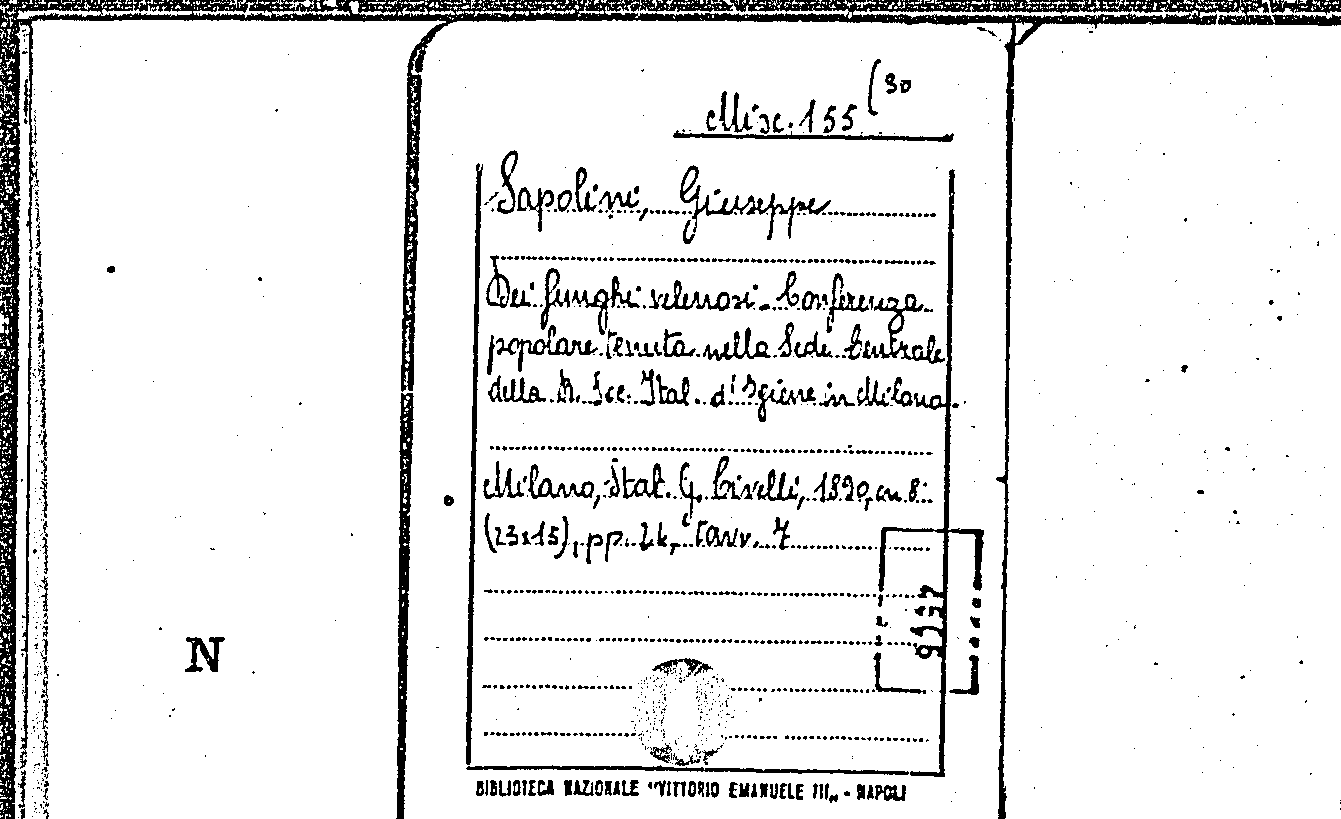 Misc. 155 (30
Sapolini, Giuseppe
Dei funghi velenosi - Conferenza
popolare tenuta nella Sede Centrale
della R. Soc. Ital. d'Igiene in Milano.
Milano, Stab. G. Civelli, 1890, in 8°
(23x15), pp. 24, tavv. 7
N
BIBLIOTECA NAZIONALE "VITTORIO EMANUELE III„ - NAPOLI